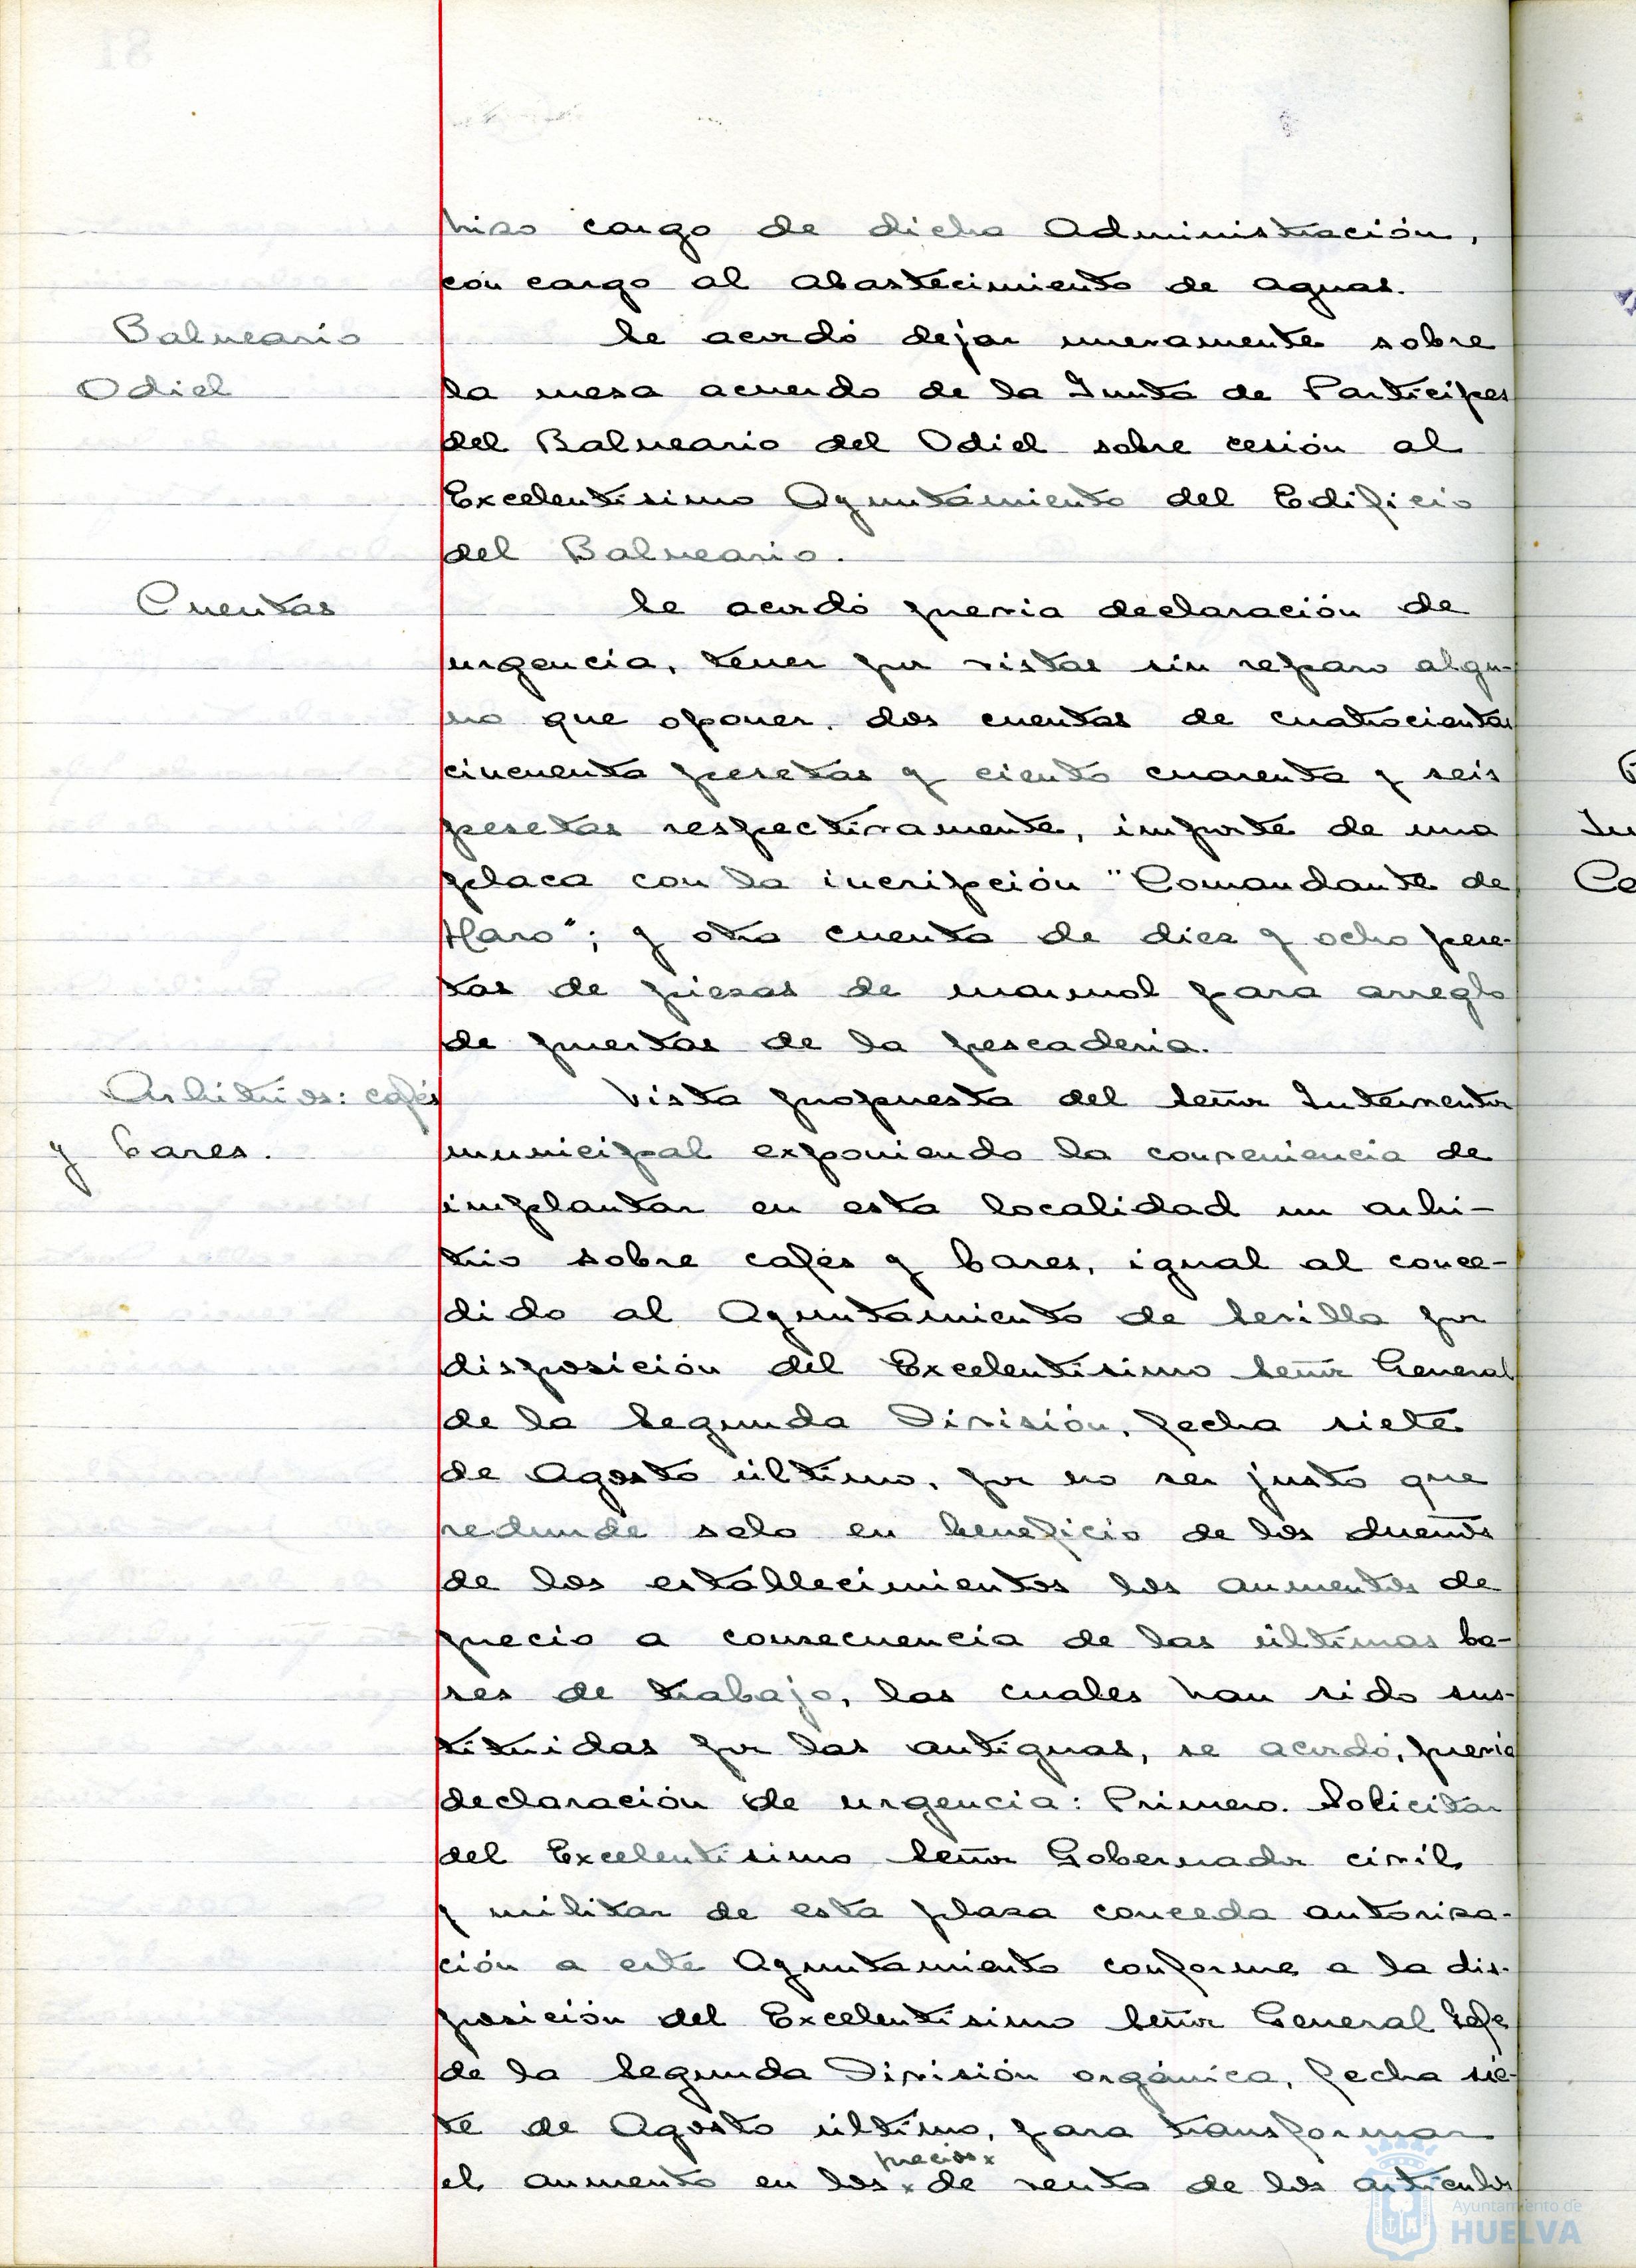 hizo cargo de dicha Administración,
con cargo al abastecimiento de aguas.
Balneario
Odiel
Se acordó dejar nuevamente sobre
la mesa acuerdo de la Junta de Partícipes
del Balneario del Odiel sobre cesión al
Excelentísimo Ayuntamiento del Edificio
del Balneario.
Cuentas
Se acordó previa declaración de
urgencia, tener por vistas sin reparo algu-
no que oponer, dos cuentas de cuatrocientas
cincuenta pesetas y ciento cuarenta y seis
pesetas respectivamente, importe de una
placa con la incripción "Comandante de
Haro"; y otra cuenta de diez y ocho pese-
tas de piezas de marmol para arreglo
de puertas de la pescaderia.
Arbitrios: cafés
y bares.
Vista propuesta del Señor Interventor
municipal exponiendo la conveniencia de
implantar en esta localidad un arbi-
trio sobre cafés y bares, igual al conce-
dido al Ayuntamiento de Sevilla por
disposición del Excelentísimo Señor General
de la Segunda División, fecha siete
de Agosto último, por no ser justo que
redunde solo en beneficio de los dueños
de los establecimientos los aumentos de
precio a consecuencia de las últimas ba-
ses de trabajo, las cuales han sido sus-
tituidas por las antiguas, se acordó, previa
declaración de urgencia: Primero. Solicitar
del Excelentísimo Señor Gobernador civil
y militar de esta plaza conceda autoriza-
ción a este Ayuntamiento conforme a la dis-
posición del Excelentísimo Señor General Jefe
de la Segunda División orgánica, fecha sie-
te de Agosto último, para transformar
precios x
el aumento en los x de venta de los artículos
Ayuntamiento de
HUELVA